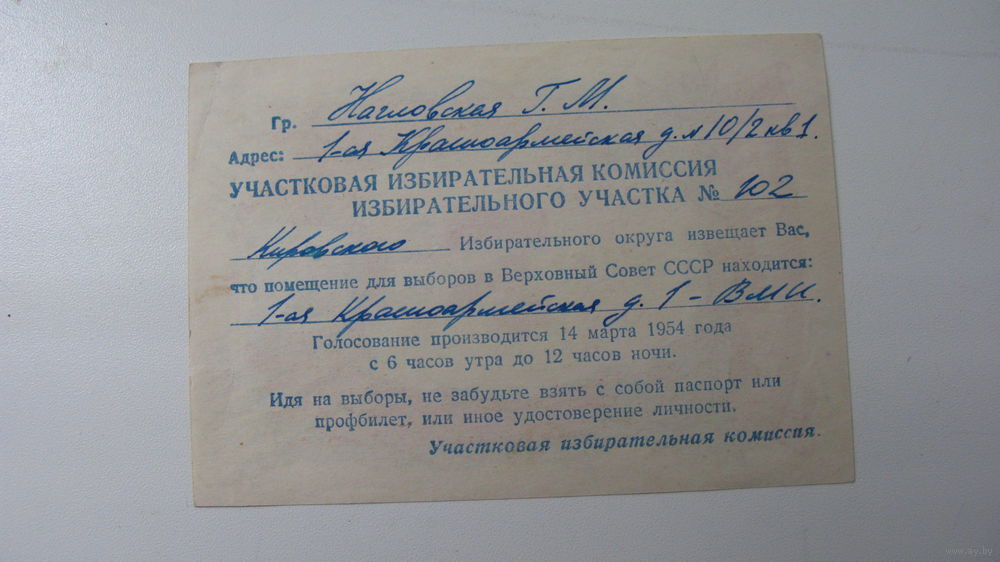 Гр. Нагловская Г. М.
Адрес: 1-ая Красноармейская д. № 10/2 кв 1.
УЧАСТКОВАЯ ИЗБИРАТЕЛЬНАЯ КОМИССИЯ
ИЗБИРАТЕЛЬНОГО УЧАСТКА № 102
Кировского Избирательного округа извещает Вас,
что помещение для выборов в Верховный Совет СССР находится:
1-ая Красноармейская д. 1 – ВМИ.
Голосование производится 14 марта 1954 года
с 6 часов утра до 12 часов ночи.
Идя на выборы, не забудьте взять с собой паспорт или
профбилет, или иное удостоверение личности.
Участковая избирательная комиссия.
www.ay.by